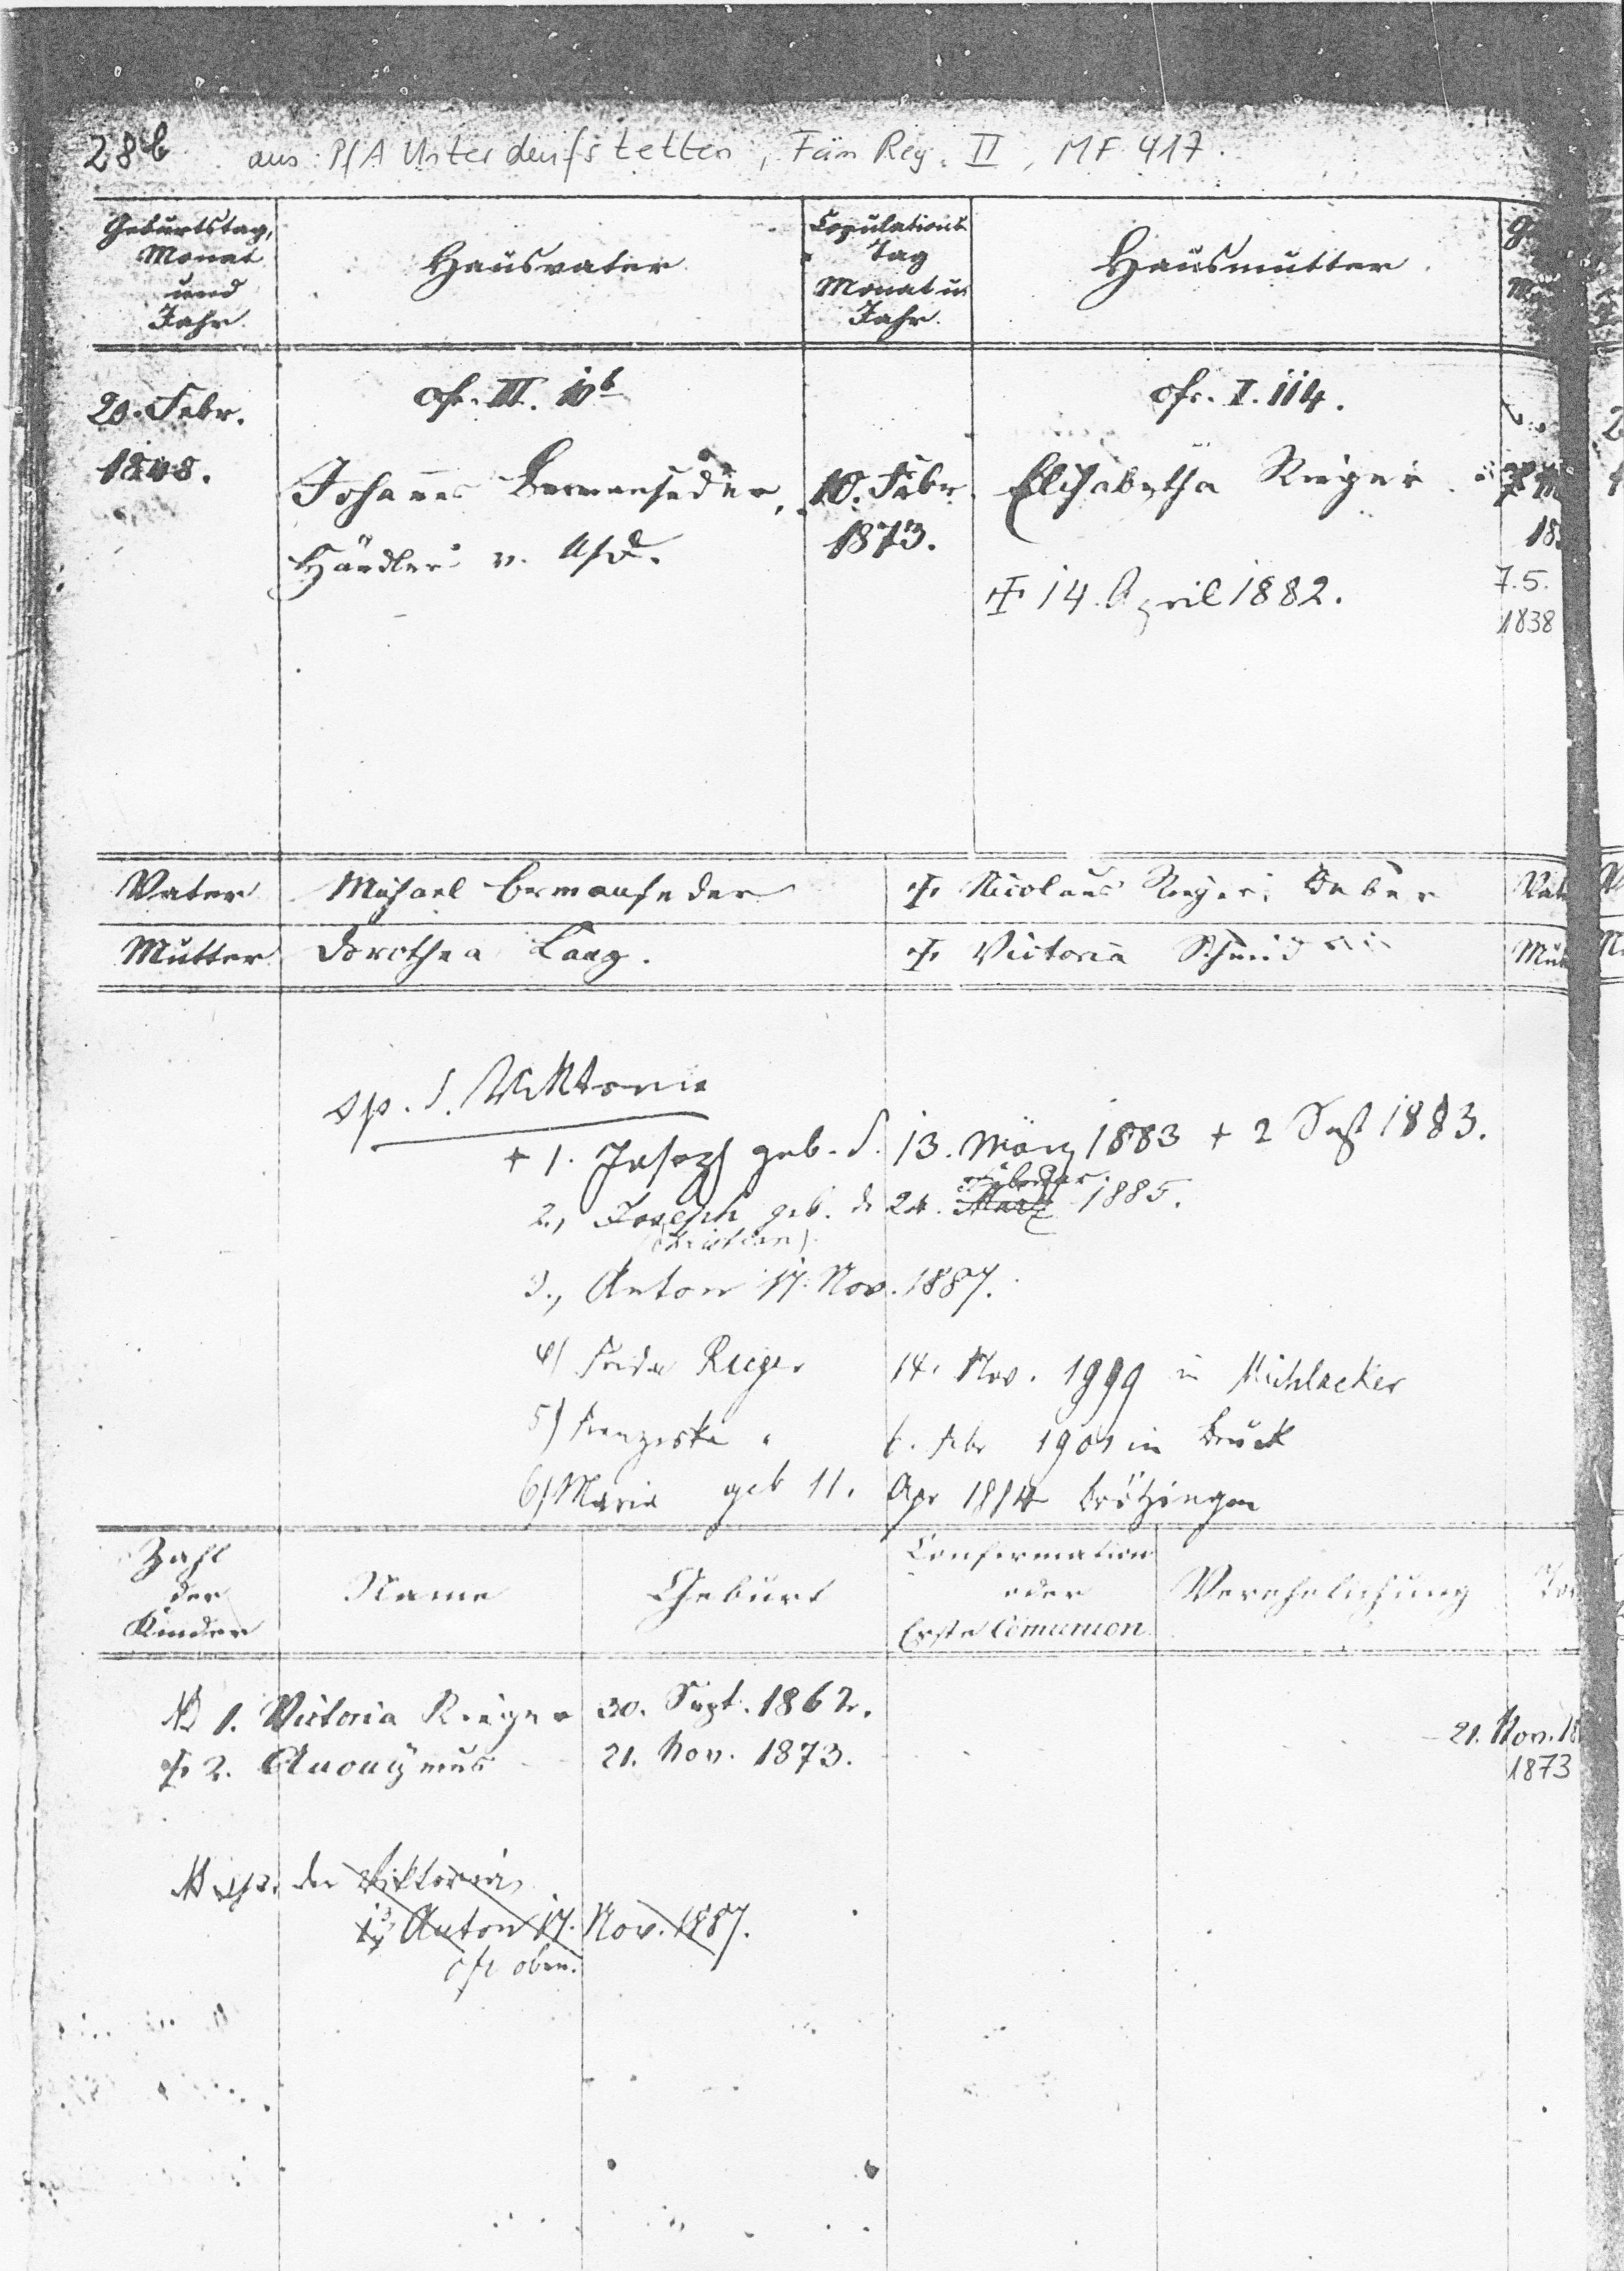 28b aus: PfA Unterdeufstetten, Fam Reg. II, MF 417.
Geburtstag,
Monat
und
Jahr.
Hausvater
Copulations
Tag
Monat u.
Jahr.
Hausmutter
20. Febr.
1848.
cfr. II.
Johannes
Händler v.
10. Febr.
1873.
cfr. I. 114.
Elisabetha Rieger
14. April 1882.
7.5.
1838
Vater Michael Nicolaus Rieger
Mutter Dorothea Victoria Schmid
sp. d. Viktoria
+ 1. Joseph geb. d. 13. März 1883 + 2 Sept 1883.
2., Joseph geb. d. 24. März Februar 1885.
(Christian)
3., Anton 17. Nov. 1887.
4) Frida Rieger 14. Nov. 1999 in Mühlacker
5) Franziska " 6. Febr 1901 in Bruck
6) Maria geb 11. Apr 1894 Brötzingen
Zahl
der
Kinder
Name
Geburt
Confirmation
oder
Erste Comunion
Verehelichung
NB 1. Victoria Rieger 30. Sept. 1862.
2. Anonymus 21. Nov. 1873. 21. Nov. 18
1873
NB sp. der Viktoria,
1., Anton 17. Nov. 1887.
cfr oben.